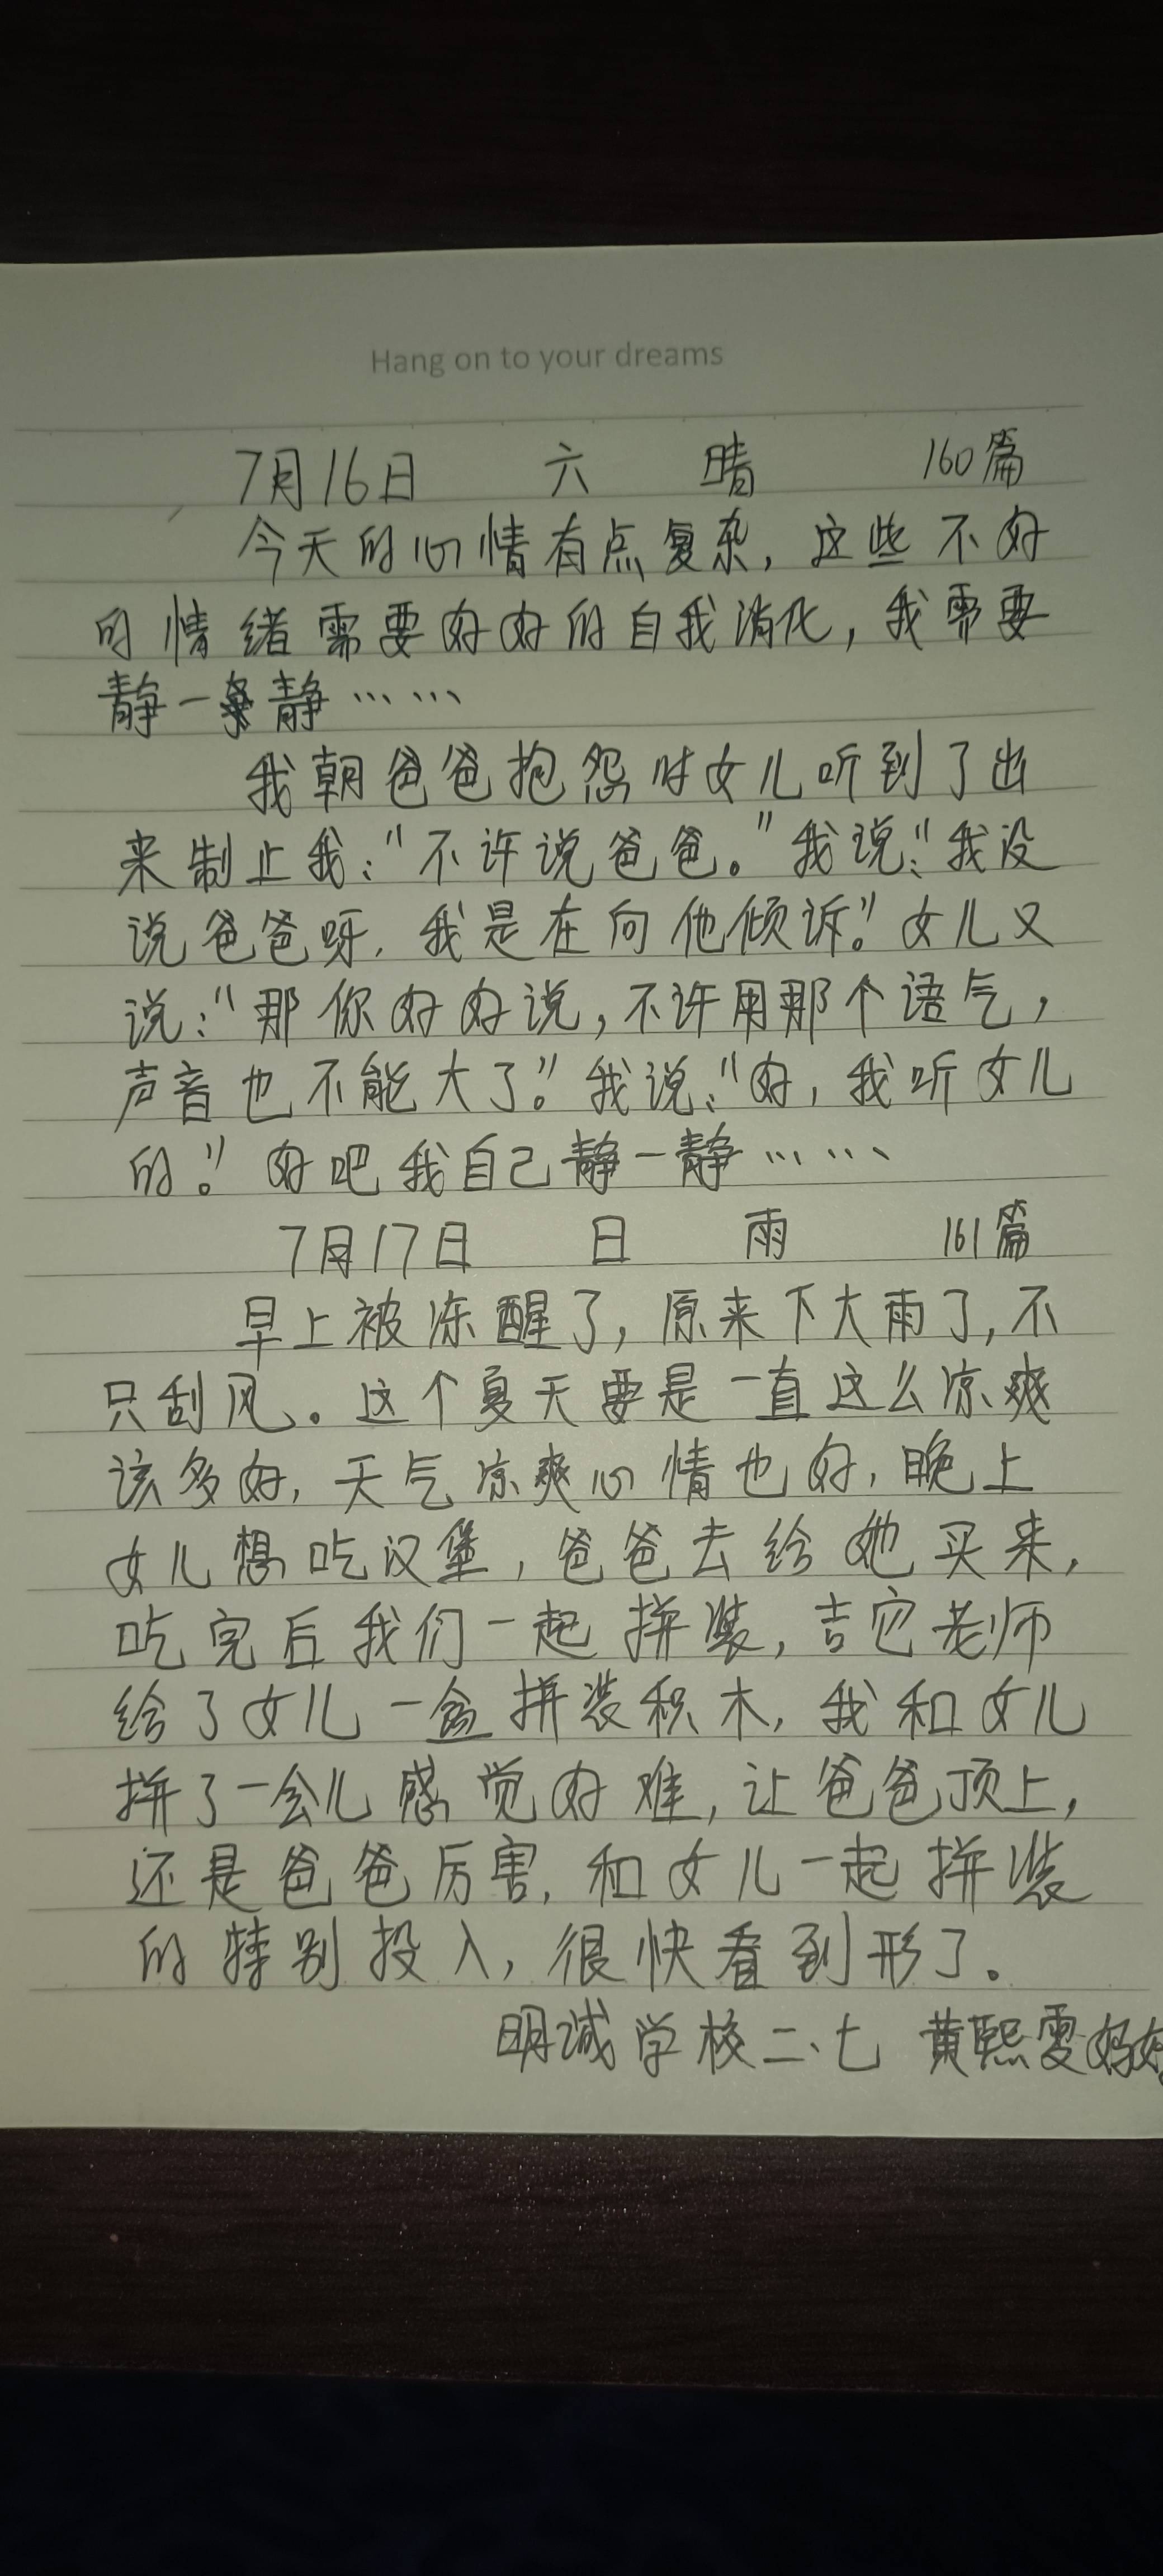 Hang on to your dreams
7月16日 六 晴 160篇
今天的心情有点复杂，这些不好
的情绪需要好好的自我消化，我需要
静一静……
我朝爸爸抱怨时女儿听到了出
来制止我：“不许说爸爸。”我说：“我没
说爸爸呀，我是在向他倾诉。”女儿又
说：“那你好好说，不许用那个语气，
声音也不能大了。”我说：“好，我听女儿
的。”好吧我自己静一静……
7月17日 日 雨 161篇
早上被冻醒了，原来下大雨了，不
只刮风。这个夏天要是一直这么凉爽
该多好，天气凉爽心情也好，晚上
女儿想吃汉堡，爸爸去给她买来，
吃完后我们一起拼装，吉它老师
给了女儿一盒拼装积木，我和女儿
拼了一会儿感觉好难，让爸爸顶上，
还是爸爸厉害，和女儿一起拼装
的特别投入，很快看到形了。
明诚学校二、七 黄熙雯妈妈